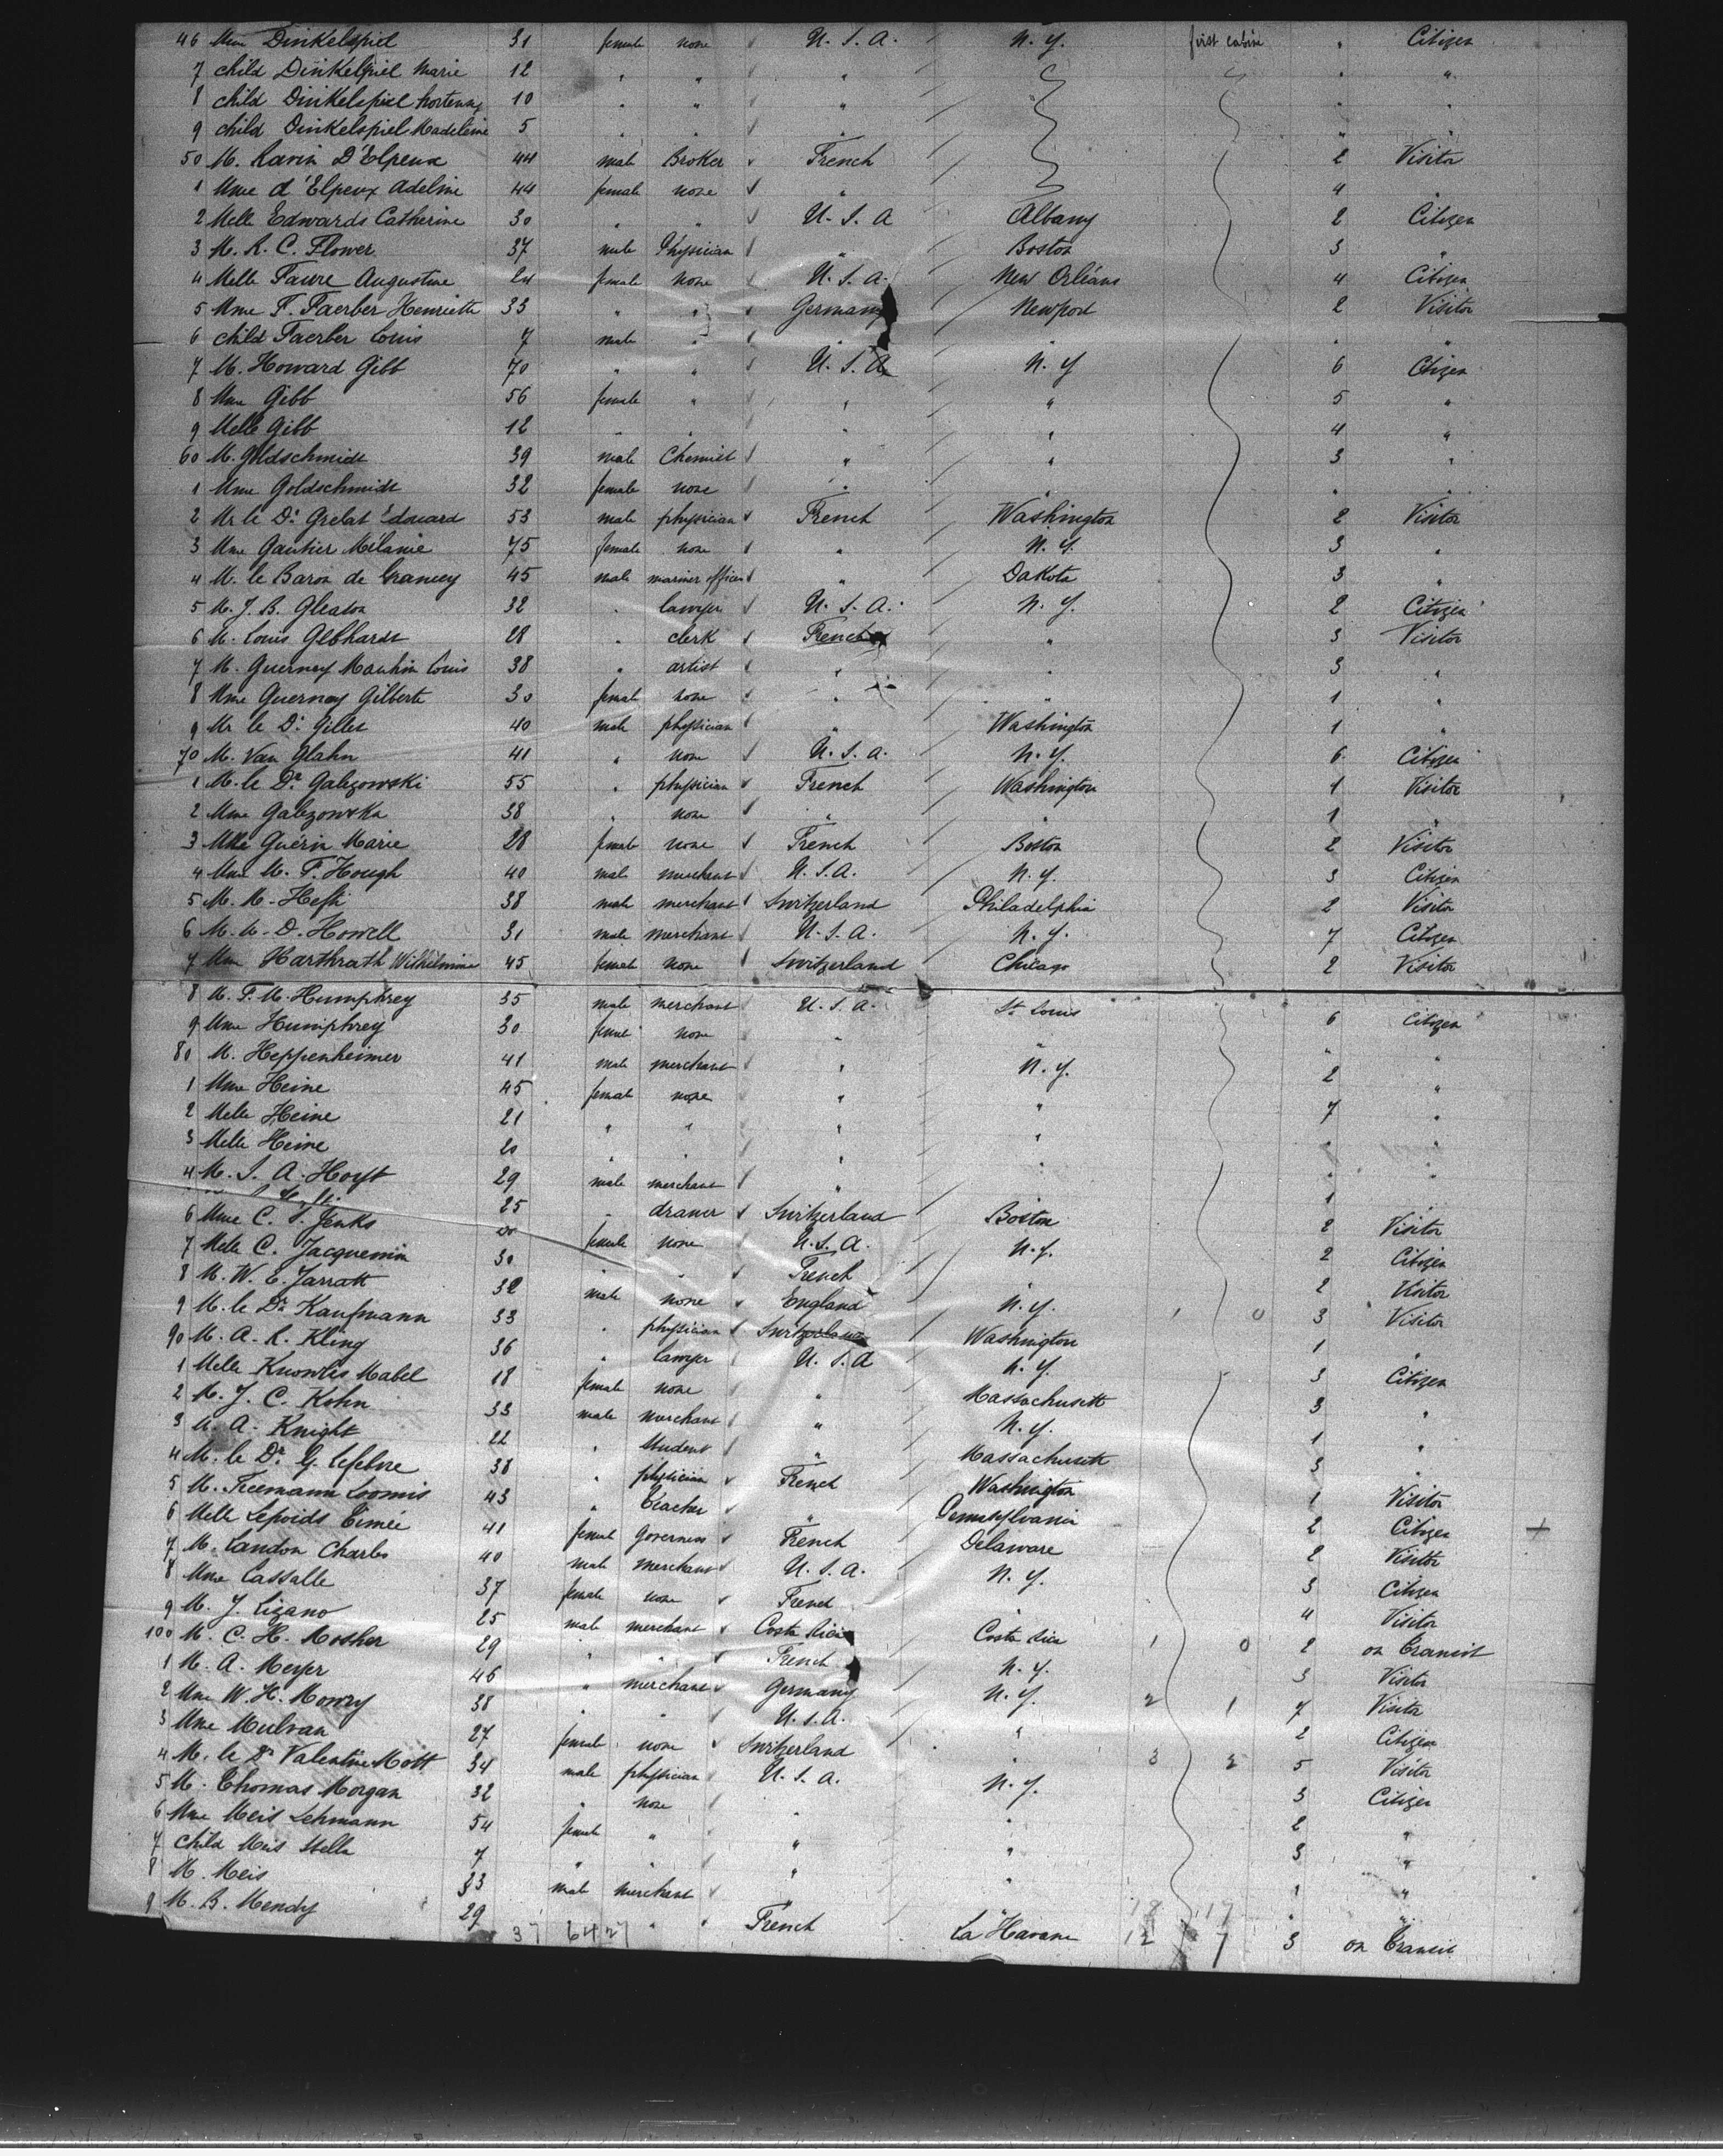 46 Mme Dinkelspiel 31 female none U. S. A. N. Y. first cabin " Citizen
7 child Dinkelspiel Marie 12 " " " " "
8 child Dinkelspiel hortense 10 " " " " "
9 child Dinkelspiel Madeleine 5 " " " " "
50 M. Ravin D'Elpeux 44 male Broker French 2 Visitor
1 Mme d'Elpeux Adeline 44 female none " 4 "
2 Melle Edwards Catherine 30 " " U. S. A Albany 2 Citizen
3 M. R. C. Flower 37 male Physician " Boston 3 "
4 Melle Faure Augustine 24 female none U. S. A. New Orléans 4 Citizen
5 Mme F. Faerber Henriette 33 " " Germany Newport 2 Visitor
6 child Faerber Louis 7 male " " " " "
7 M. Howard Gibb 70 " " U. S. A N. Y 6 Citizen
8 Mme Gibb 56 female " " " 5 "
9 Melle Gibb 12 " " " " 4 "
60 M. Goldschmidt 39 male Chemist " " 3 "
1 Mme Goldschmidt 32 female none " " " "
2 Mr le Dr Grelat Edouard 53 male physician French Washington 2 Visitor
3 Mme Gautier Mélanie 75 female none " N. Y. 3 "
4 M. le Baron de Grancey 45 male mariner officer " Dakota 3 "
5 M. J. B. Gleaton 32 " lawyer U. S. A. N. Y. 2 Citizen
6 M. Louis Gebhardt 28 " clerk French " 3 Visitor
7 M. Guernay Mauhin Louis 38 " artist " " 3 "
8 Mme Guernay Gilberte 30 female none " " 1 "
9 Mr le Dr Gilles 40 male physician " Washington 1 "
70 M. Van Glahn 41 " none U. S. A. N. Y. 6 Citizen
1 M. le Dr Galezowski 55 " physician French Washington 1 Visitor
2 Mme Galezowska 38 " none " " 1 "
3 Mlle Guérin Marie 28 female none French Boston 2 Visitor
4 Mme M. F. Hough 40 male merchant U. S. A. N. Y. 3 Citizen
5 M. M. Hefti 38 male merchant Switzerland Philadelphia 2 Visitor
6 M. W. D. Howell 31 male merchant U. S. A. N. Y. 7 Citizen
7 Mme Harthrath Wilhilmine 45 female none Switzerland Chicago 2 Visitor
8 M. F. M. Humphrey 35 male merchant U. S. A. St Louis 6 Citizen
9 Mme Humphrey 30 female none " " " "
80 M. Heppenheimer 41 male merchant " N. Y. 2 "
1 Mme Heine 45 female none " " 7 "
2 Melle Heine 21 " " " " " "
3 Melle Heine 20 " " " " " "
4 M. S. A. Hoyt 29 male merchant " 1 "
25 " drawer Switzerland Boston 2 Visitor
6 Mme C. S. Jenks female none U. S. A. N. Y. 2 Citizen
7 Melle C. Jacquemin 30 " " French " 2 Visitor
8 M. W. E. Jarratt 32 male none England N. Y. 1 0 3 Visitor
9 M. le Dr Kaufmann 33 " physician Switzerland Washington 1 "
90 M. A. R. Kling 36 " lawyer U. S. A N. Y. 3 Citizen
1 Melle Knowles Mabel 18 female none " Massachusett 3 "
2 M. J. C. Kohn 33 male merchant " N. Y. 1 "
3 M. A. Knight 22 " Student " Massachusett 3 "
4 M. le Dr G. Lefebvre 38 " physician French Washington 1 Visitor
5 M. Freemann Loomis 43 " Teacher " Pennsylvania 2 Citizen +
6 Melle Lepoids Eimée 41 female Governess French Delaware 2 Visitor
7 M. Landon Charles 40 male merchant U. S. A. N. Y. 3 Citizen
8 Mme Lassalle 37 female none French " 4 Visitor
9 M. J. Lizano 25 male merchant Costa Rica Costa Rica 1 0 2 on Transit
100 M. C. H. Mosher 29 " " French N. Y. 3 Visitor
1 M. A. Meyer 46 " merchant Germany N. Y. 2 1 7 Visitor
2 Mme W. H. Mowry 38 " " U. S. A. " 2 Citizen
3 Mme Mulvan 27 female none Switzerland " 3 2 5 Visitor
4 M. le Dr Valentine Mott 34 male physician U. S. A. N. Y. 3 Citizen
5 M. Thomas Morgan 32 " none " " 2 "
6 Mme Meis Lehmann 54 female " " " 3 "
7 child Meis Stella 7 " " " " 1 "
8 M. Meis 33 male merchant " " " "
9 M. B. Mendy 29 " " French La Havane 12 7 3 on Transit
37 6427 18 17